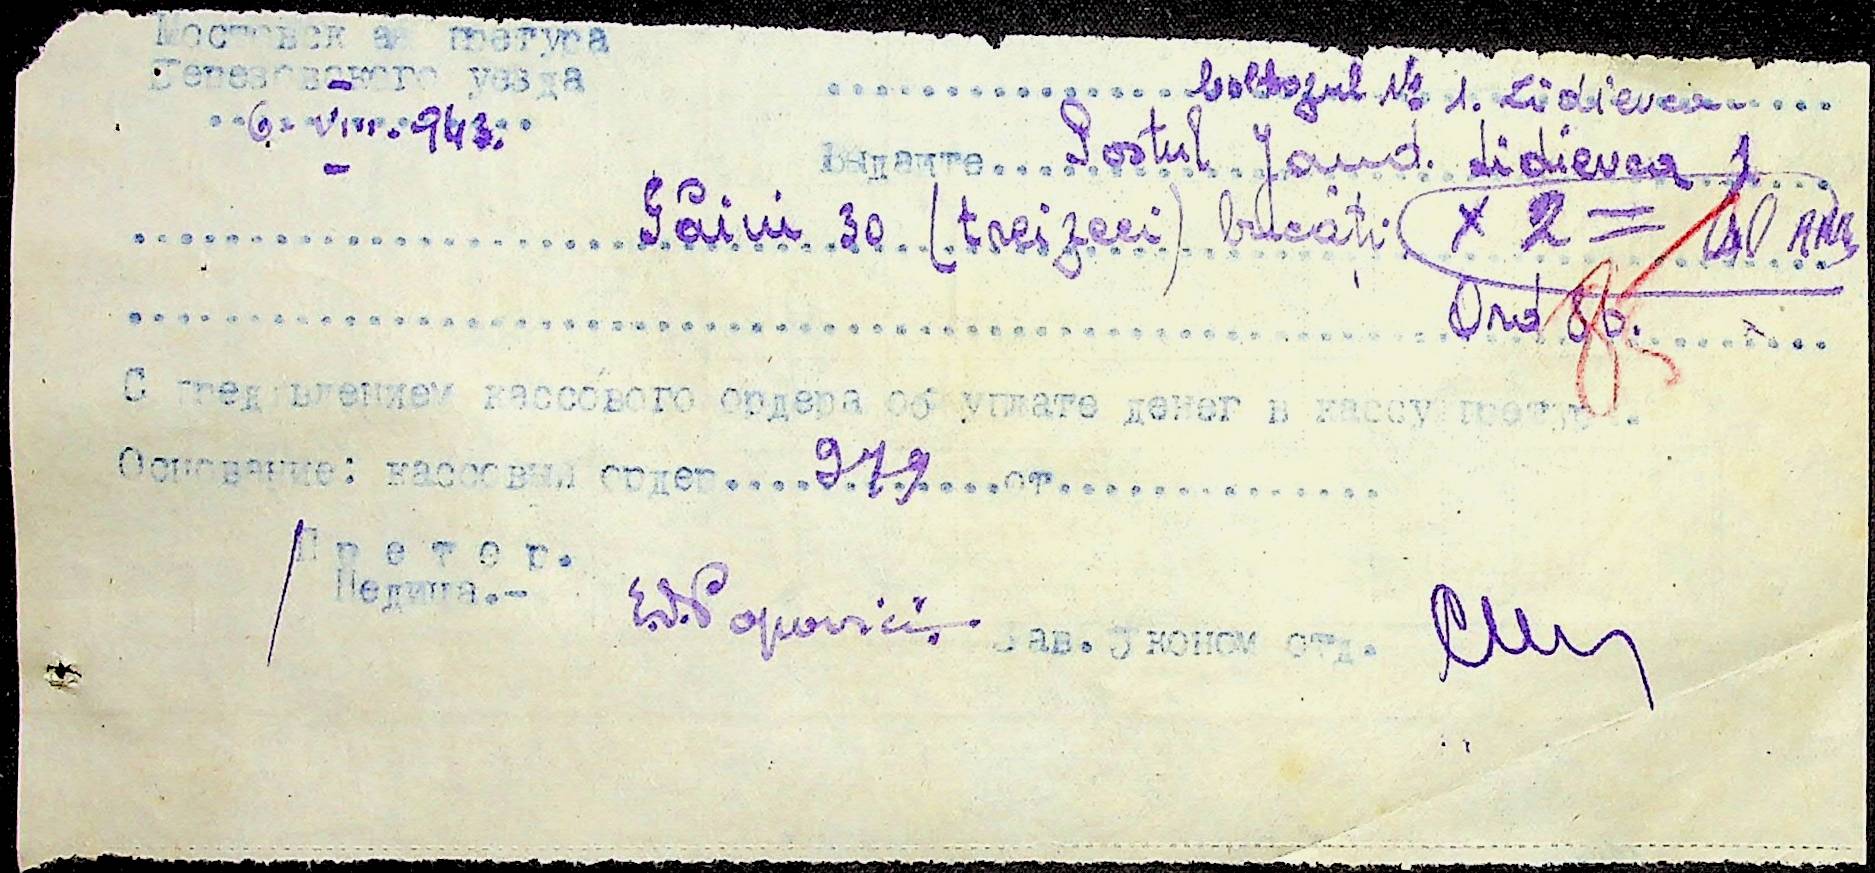 Мостовск ая претура
Березовского уезда
6. VIII. 943.
Colhozul № 1. Lidievca
Выдайте... Postul Jand. Lidievca
Găini 30 (treizeci) bucăți × 2 =
Ord 86.
С пред'явлением кассового ордера об уплате денег в кассу претуры.
Основание: кассовый ордер.... 979 ......от...............
Претор.
Педица.-
Popovici
Зав. Эконом отд.